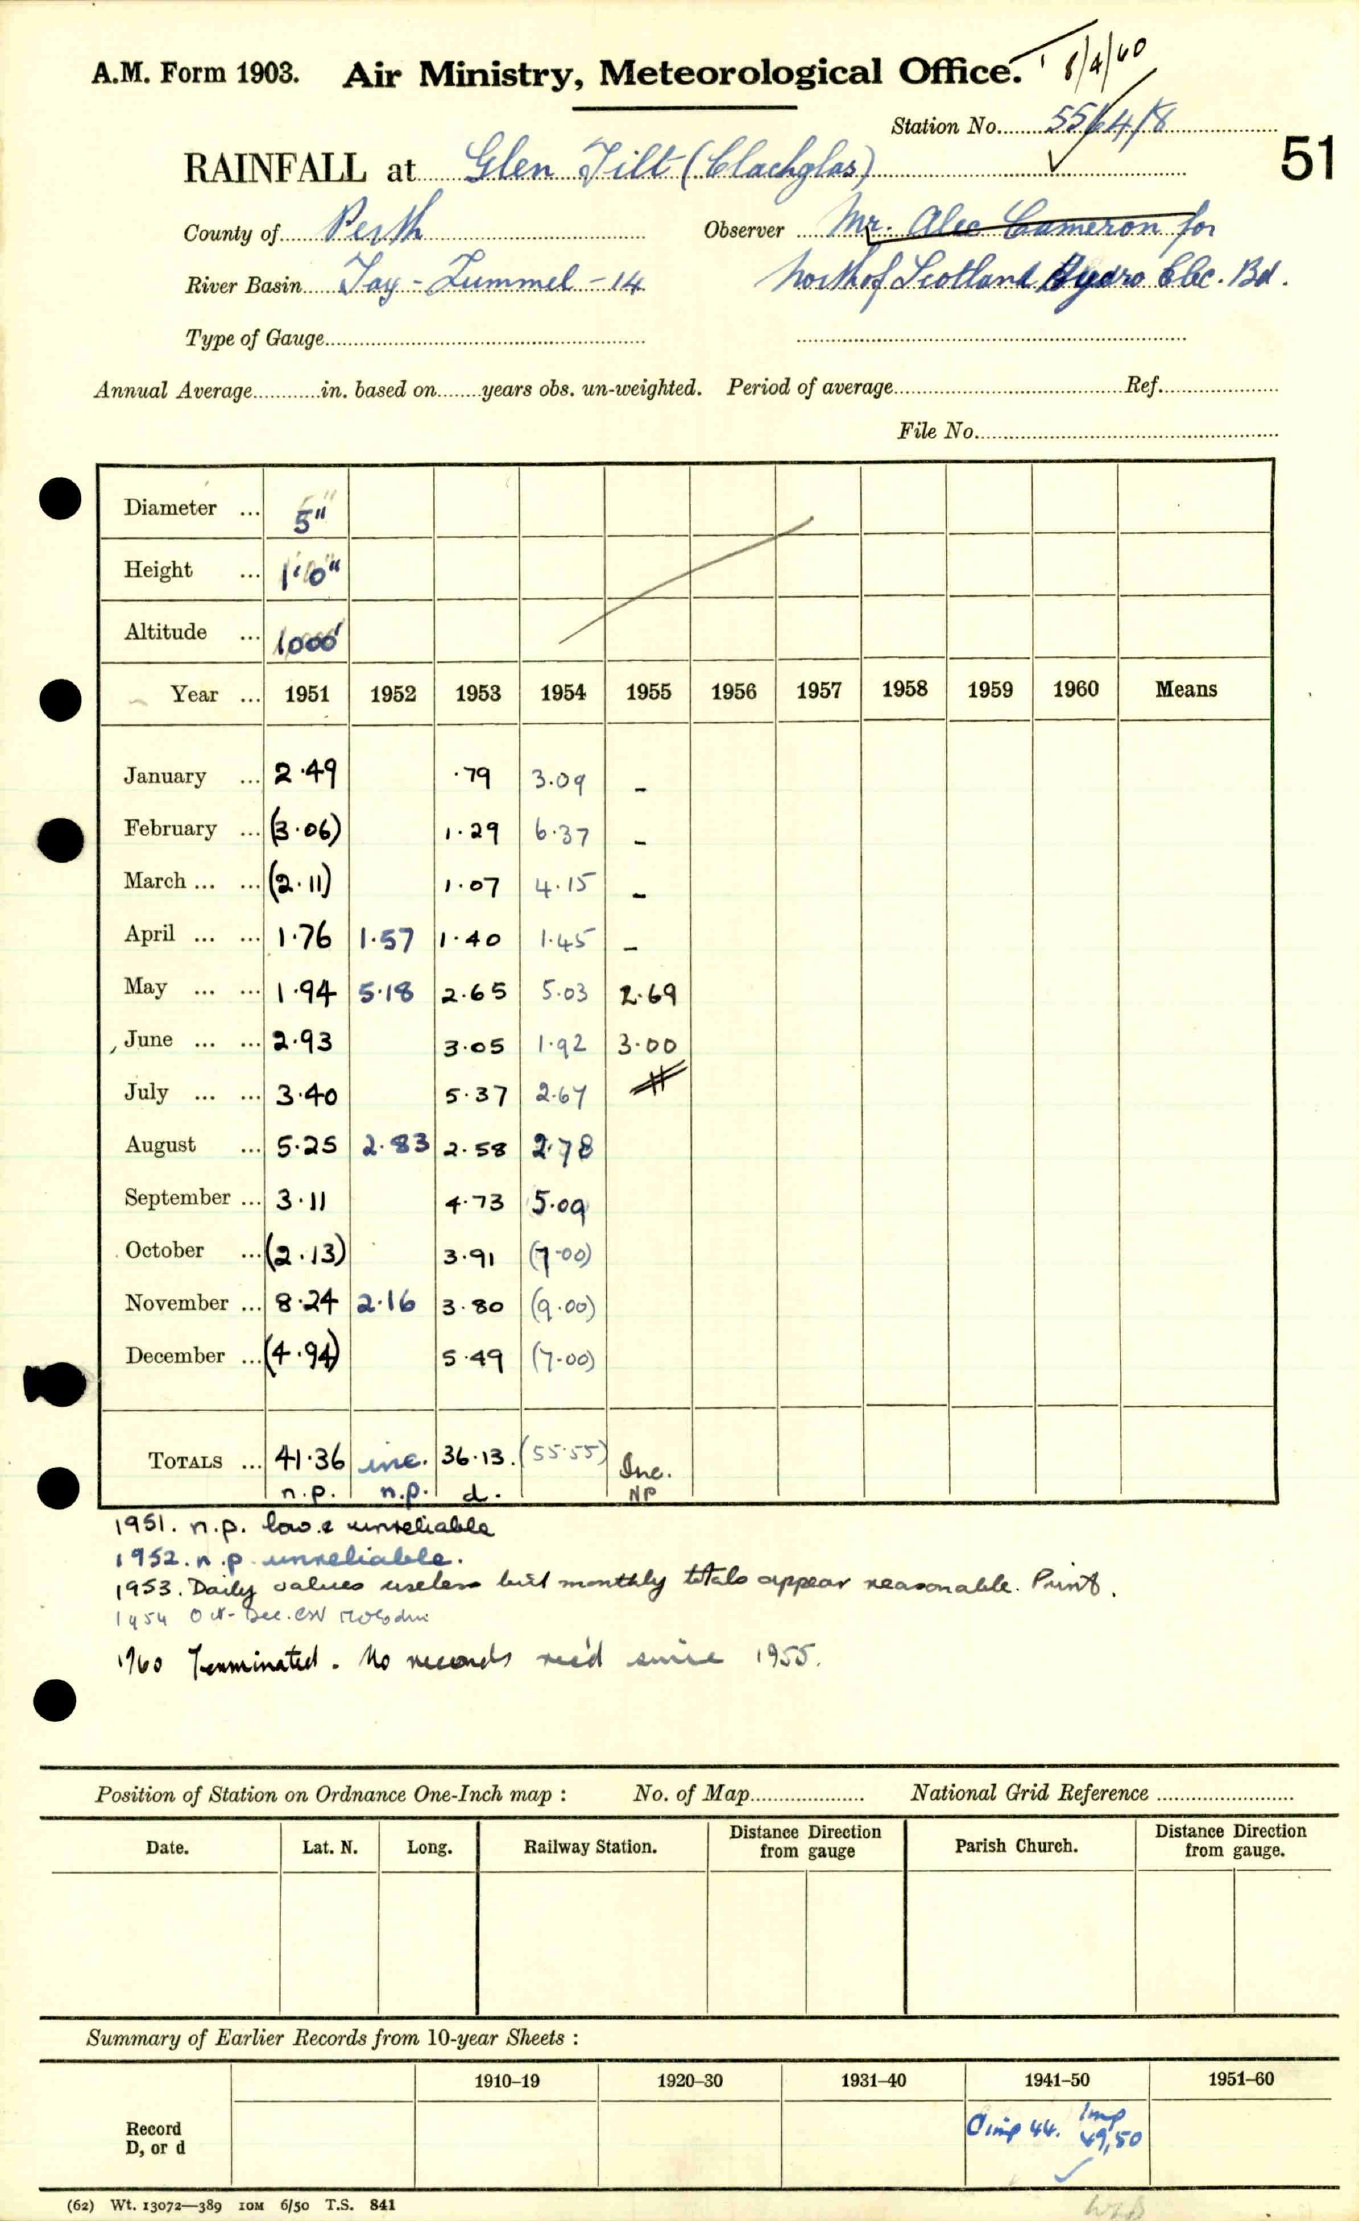 8/4/60
A.M. Form 1903. Air Ministry, Meteorological Office.
Station No. 5564/8
51
RAINFALL at Glen Tilt (Clachglas)
County of Perth Observer Mr. Alec Cameron for
River Basin Tay - Tummel - 14 North of Scotland Hydro Elec. Bd.
Type of Gauge
Annual Average in. based on years obs. un-weighted. Period of average Ref.
File No.
Diameter ... 5"
Height ... 1'0"
Altitude ... 1000'
Year ... 1951 1952 1953 1954 1955 1956 1957 1958 1959 1960 Means
January ... 2.49 .79 3.09 -
February ... (3.06) 1.29 6.37 -
March ... ... (2.11) 1.07 4.15 -
April ... ... 1.76 1.57 1.40 1.45 -
May ... ... 1.94 5.18 2.65 5.03 2.69
June ... ... 2.93 3.05 1.92 3.00
July ... ... 3.40 5.37 2.67
August ... 5.25 2.83 2.58 2.78
September ... 3.11 4.73 5.09
October ... (2.13) 3.91 (7.00)
November ... 8.24 2.16 3.80 (9.00)
December ... (4.94) 5.49 (7.00)
TOTALS ... 41.36 inc. 36.13. (55.55) Inc.
n.p. n.p. d. NP
1951. n.p. low & unreliable
1952. n.p. unreliable.
1953. Daily values useless but monthly totals appear reasonable. Print.
1954 Oct-Dec.
1960 Terminated. No records rec'd since 1955.
Position of Station on Ordnance One-Inch map : No. of Map National Grid Reference
Date. Lat. N. Long. Railway Station. Distance Direction from gauge Parish Church. Distance Direction from gauge.
Summary of Earlier Records from 10-year Sheets :
1910–19 1920–30 1931–40 1941–50 1951–60
Record D, or d
imp 44. Imp 49,50
(62) Wt. 13072—389 10M 6/50 T.S. 841